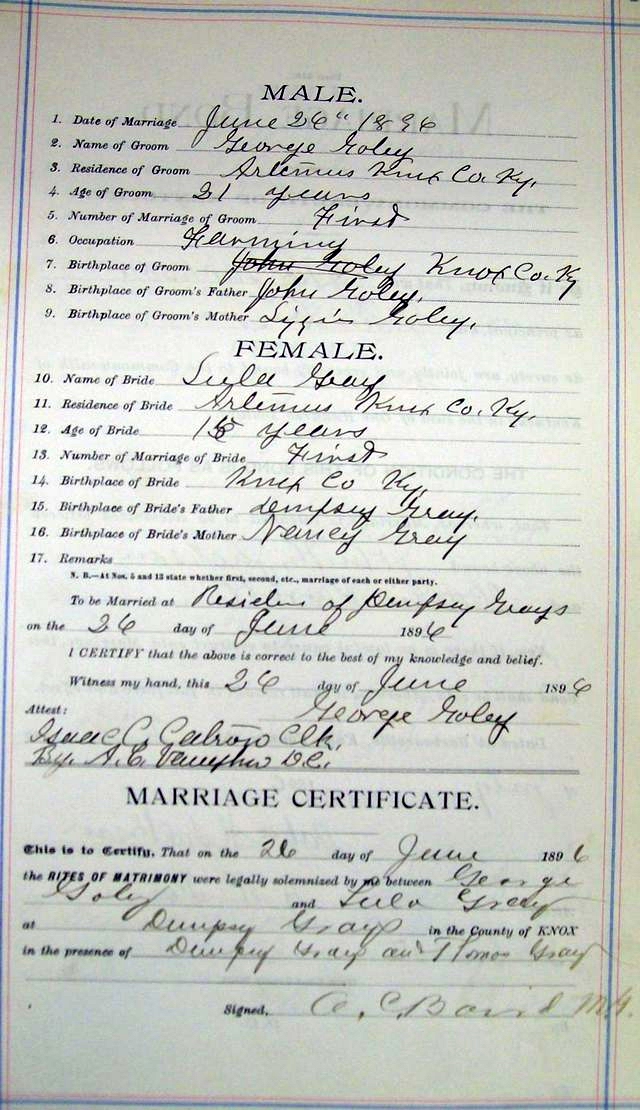 MALE.
1. Date of Marriage June 26" 1896
2. Name of Groom George Goley
3. Residence of Groom Artemus Knox Co. Ky.
4. Age of Groom 21 years
5. Number of Marriage of Groom First
6. Occupation Farming
7. Birthplace of Groom John Goley Knox Co. Ky
8. Birthplace of Groom's Father John Goley.
9. Birthplace of Groom's Mother Lizzie Goley.
FEMALE.
10. Name of Bride Lula Gray
11. Residence of Bride Artemus Knox Co. Ky.
12. Age of Bride years
13. Number of Marriage of Bride First
14. Birthplace of Bride Knox Co Ky.
15. Birthplace of Bride's Father Dempsey Gray.
16. Birthplace of Bride's Mother Nancy Gray
17. Remarks
N. B.—At Nos. 5 and 13 state whether first, second, etc., marriage of each or either party.
To be Married at of Dempsy Grays
on the 26 day of June 1896
I CERTIFY that the above is correct to the best of my knowledge and belief.
Witness my hand, this 26 day of June 1896
George Goley
Attest:
Isaac C. Clk.
By. A. C. D.C.
MARRIAGE CERTIFICATE.
This is to Certify, That on the 26 day of June 1896
the RITES OF MATRIMONY were legally solemnized by me between George
Goley and Lula Gray
at Dempsy Grays in the County of KNOX
in the presence of Dempsy Gray and Thomas Gray
Signed, C.